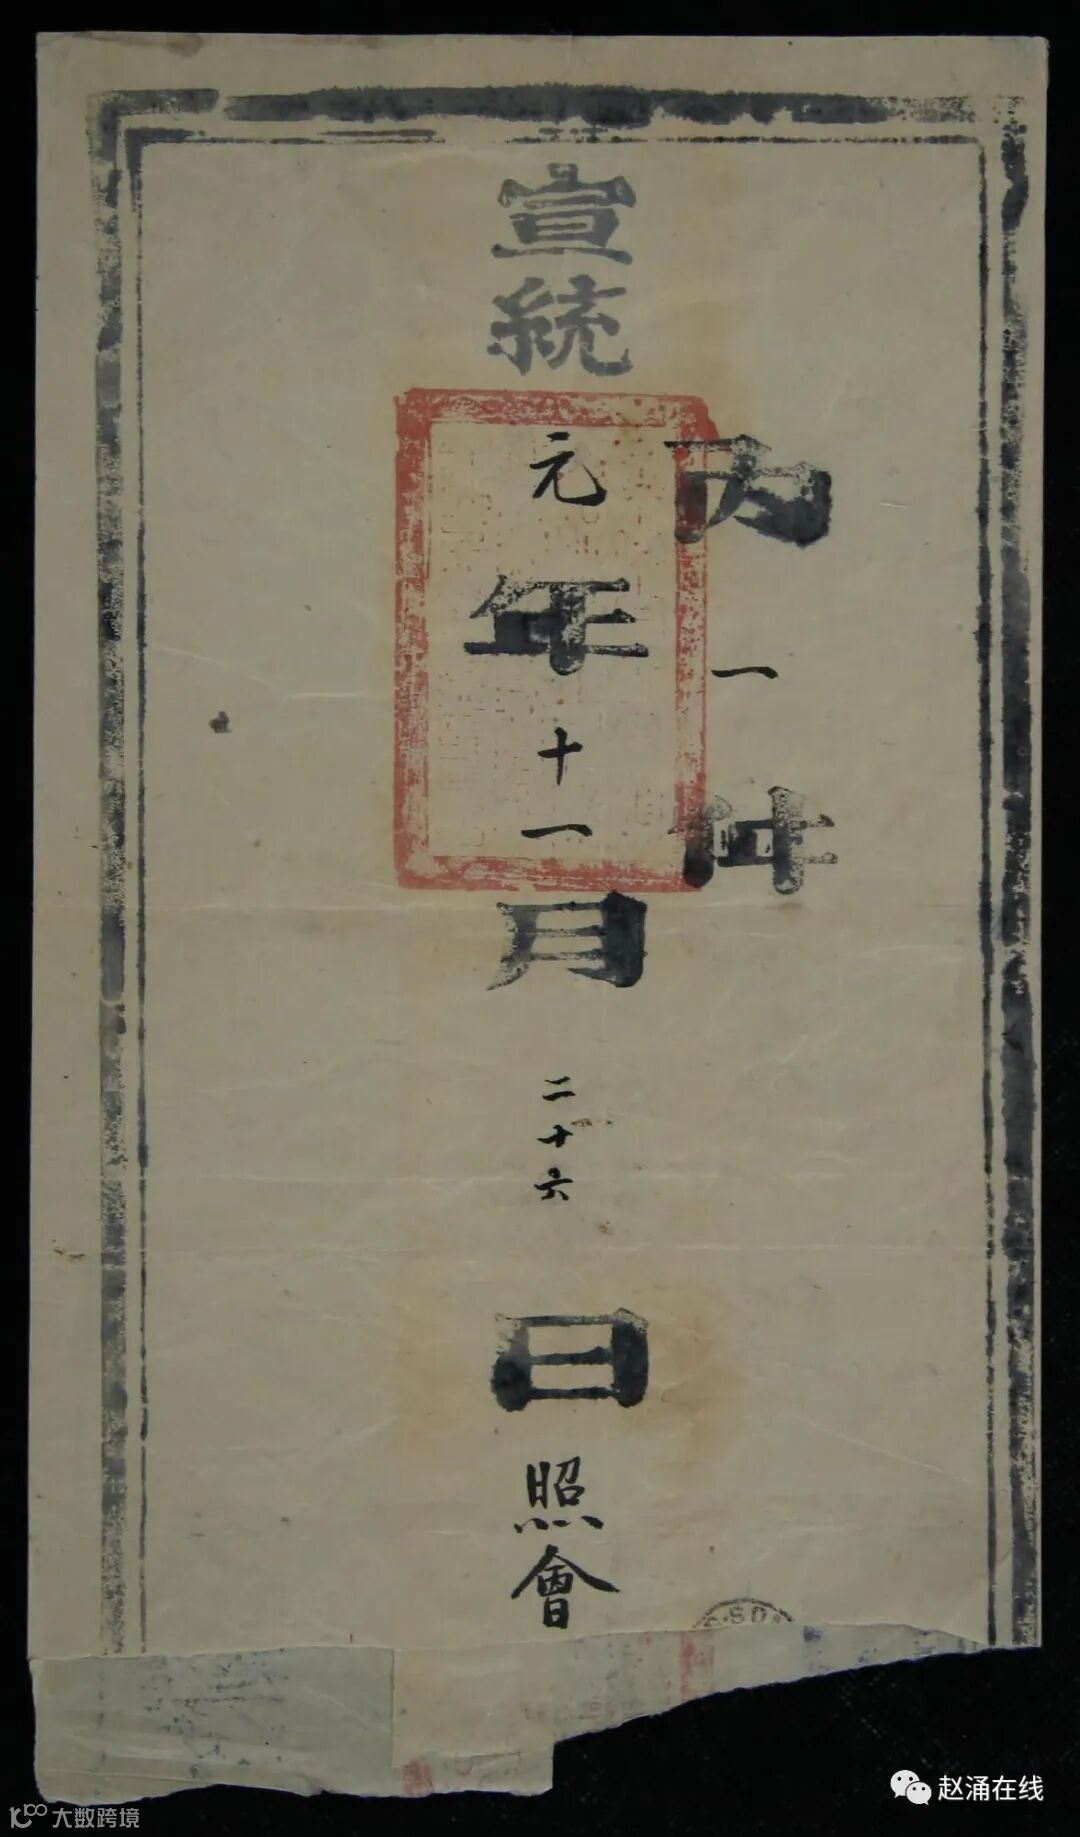 丙一件
宣統元年十一月二十六日照會
SD
赵涌在线
大数跨境